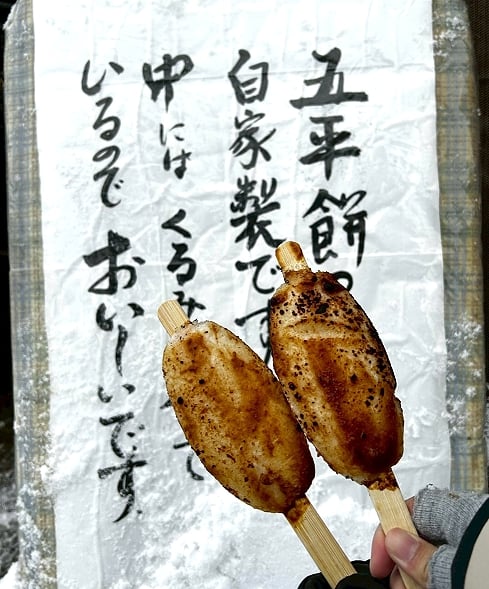 五平餅
自家製です
中には くるみ て
いるので おいしいです。